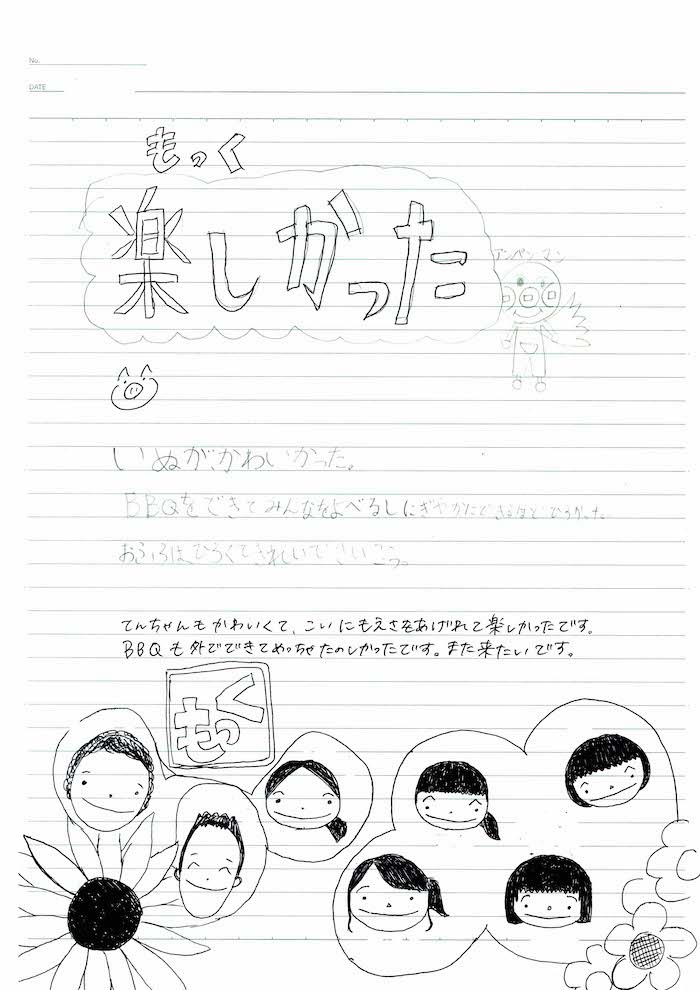 No.
DATE
もっく
楽しかった
アンパンマン
いぬが、かわいかった。
BBQをできてみんなをよべるしにぎやかにできるほどひろかった
おふろは、ひろくてきれいでさいこう。
てんちゃんもかわいくて、こいにもえさをあげれて楽しかったです。
BBQも外でできてめっちゃたのしかったです。また来たいです。
もっく